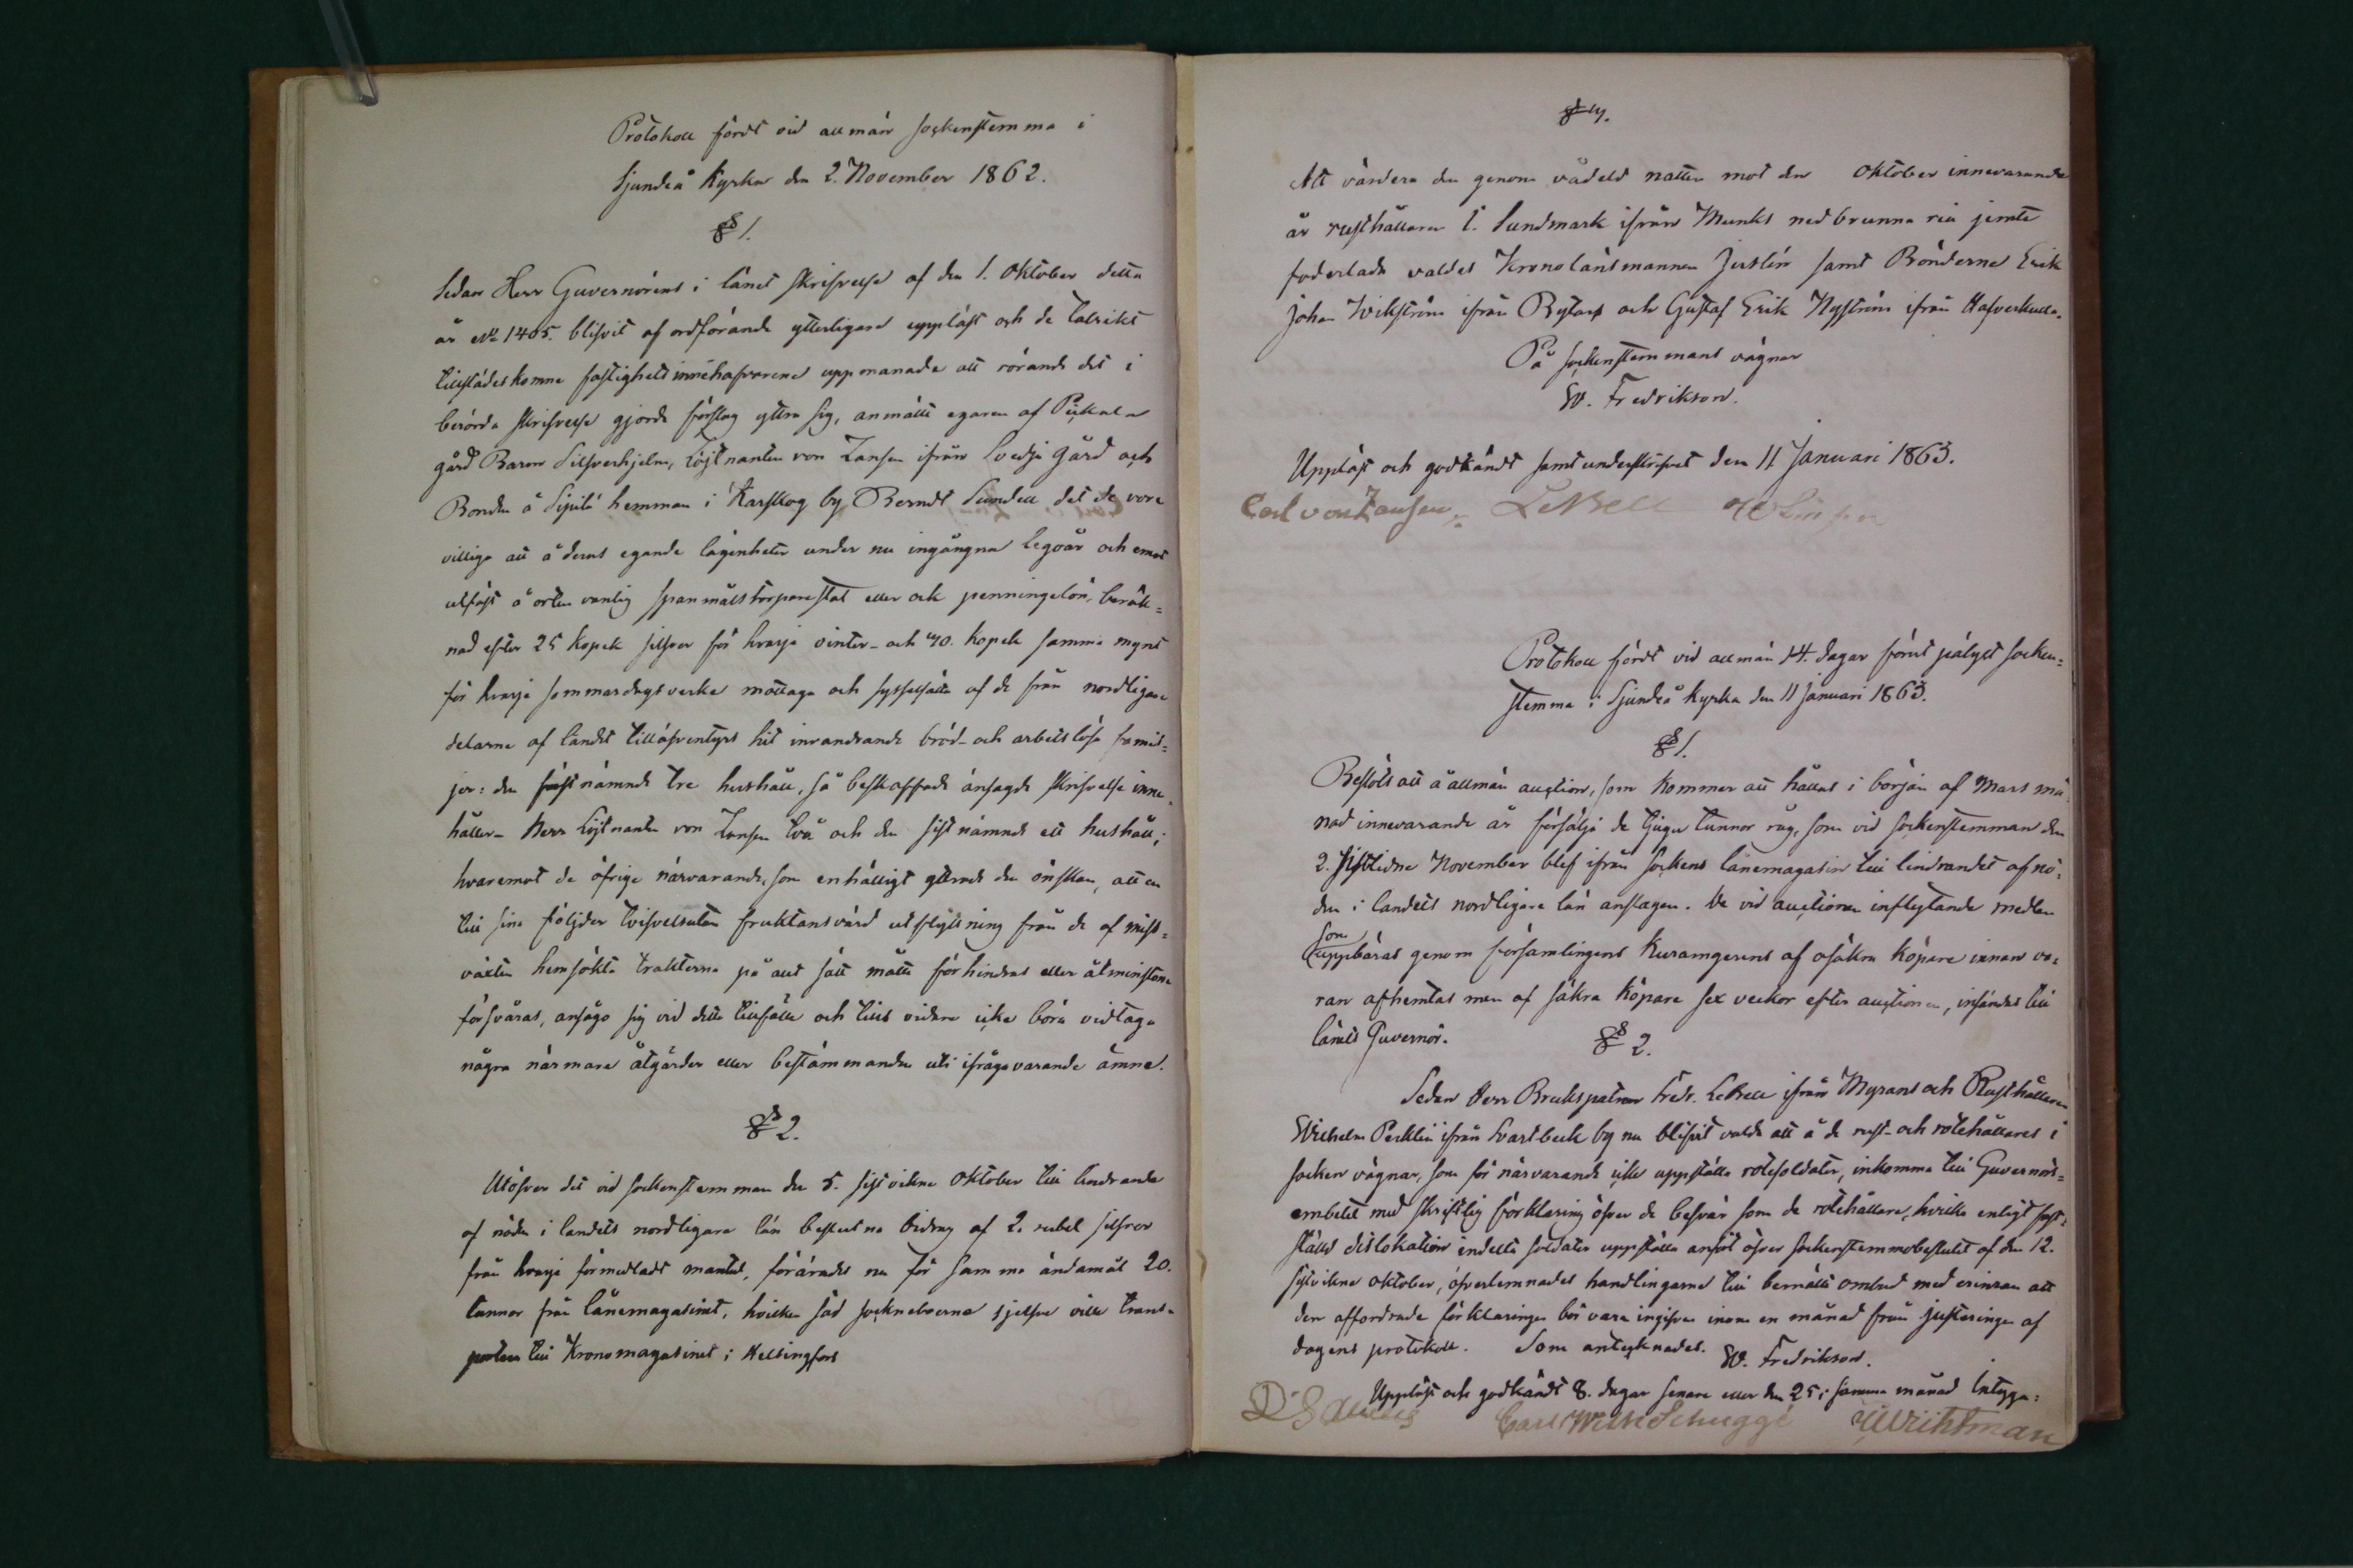 Protokoll fördt vid allmän sockenstemma i
Sjundeå Kyrka den 2. November 1862.
§ 1.
Sedan Herr Guvernörens i länet skrifvelse af den 1. Oktober detta
år No 1405. blifvit af ordförande ytterligare uppläst och de talrikt
tillstädeskomne fastighetsinnehafvarene uppmanade att rörande det i
berörda skrifvelse gjorda förslag yttra sig, anmälte egaren af Pickala
gård Baron Silfverhjelm, Löjtnanten von Zansen ifrån Svedja Gård och
Bonden å Sipilä hemman i Karskog by Berndt Sundell det de vore
villiga att å deras egande lägenheter under nu ingångna legoår och emot
utfäst å orten vanlig spanmålstorparestat eller ock penningelön, beräk-
nad efter 25 kopek silfver för hvarje vinter- och 40. kopek samma mynt
för hvarje sommardagsverke mottaga och sysselsätta af de från nordligare
delarne af landet tilläfventyrs hit invandrande bröd- och arbetslösa famil-
jer: den förstnämnde tre hushåll, så beskaffade änsagde skrifvelse inne-
håller- Herr Löjtnanten von Zansen två och den sistnämnde ett hushåll;
hvaremot de öfrige närvarande, som enhälligt yttrade den önskan, att en
till sina följder tvifvelsutan fruktansvärd utflyttning från de af miss-
växten hemsökta trakterna på allt sätt måtte förhindras eller åtminstone
försvåras, ansågo sig vid detta tillfälle och tills vidare icke böra vidtaga
några närmare åtgärder eller bestämmanden uti ifrågavarande ämne.
§ 2.
Utöfver det vid sockenstemman den 5. sistvikne Oktober till lindrande
af nöden i landets nordligare län beslutna bidrag af 2. rubel silfver
från hvarje förmedladt mantal, förärades nu för samma ändamål 20.
tunnor från lånemagasinet, hvilken säd sockneboerne sjelfve ville trans-
portera till Kronomagasinet i Helsingfors
§ 4.
Att värdera den genom vådeld natten mot den Oktober innevarande
år rusthållaren C. Sundmark ifrån Munks nedbrunna ria jemte
foderlada valdes Kronolänsmannen Juslén samt Bönderne Erik
Johan Wikström ifrån Bytars och Gustaf Erik Nyström ifrån Hafverkulla.
På sockenstemmans vägnar
W. Fredrikson.
Uppläst och godkändt samt underskrifvet den 11 Januari 1863.
Carl von Zansen, LeBell
Protokoll fördt vid allmän 14. dagar förut pålyst socken-
stemma i Sjundeå kyrka den 11 Januari 1863.
§ 1.
Beslöts att å allmän auction, som kommer att hållas i början af Mars må-
nad innevarande år försälja de tjugu tunnor råg, som vid sockenstemman den
2. sistlidne November blef ifrån sockens lånemagasin till lindrandet af nö-
den i landets nordligare län anslagen. De vid auctionen inflytande medlen
som
uppbäras genom församlingens Kuramgerens af osäkra köpare innan va-
ran afhemtas men af säkra köpare sex veckor efter auctionen, insändes till
länets Guvernör.
§ 2.
Sedan Herr Brukspatron Fredr. LeBell ifrån Myrans och Rusthållaren
Wilhelm Pecklin ifrån Svartbeck by nu blifvit valde att å de rust- och rotehållares i
socken vägnar, som för närvarande icke uppställa rotesoldater, inkomma till Guvernörs-
embetet med skriftlig förklaring öfver de besvär som de rotehållare, hvilka enligt fast-
ställd dislokation indelta soldater uppställa anfört öfver sockenstemmobeslutet af den 12.
sistvikne Oktober, öfverlemnades handlingarne till bemälte ombud med erinran att
den affordrade förklaringen bör vara ingifven inom en månad från justeringen af
dagens protokoll. Som antecknades. W. Fredrikson.
Uppläst och godkändt 8. dagar senare eller den 25 i samma månad Intyga:
Carl Wilh Schuggé Wichtman